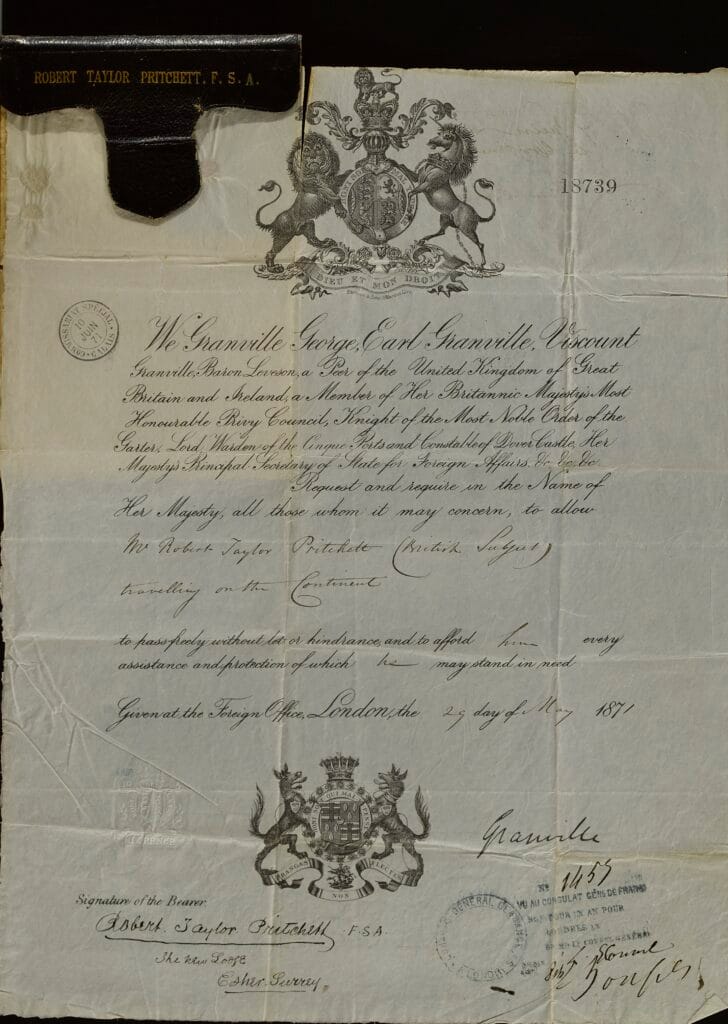 ROBERT TAYLOR PRITCHETT. F. S. A.
DIEU ET MON DROIT
18739
COMMISSARIAT SPECIAL
10 JUIN 71
CALAIS
We Granville George, Earl Granville, Viscount
Granville, Baron Leveson, a Peer of the United Kingdom of Great
Britain and Ireland, a Member of Her Britannic Majesty's Most
Honourable Privy Council, Knight of the Most Noble Order of the
Garter, Lord Warden of the Cinque Ports and Constable of Dover Castle, Her
Majesty's Principal Secretary of State for Foreign Affairs. &c. &c. &c.
Request and require in the Name of
Her Majesty, all those whom it may concern, to allow
Mr Robert Taylor Pritchett (British Subject)
travelling on the Continent
to pass freely without let or hindrance, and to afford him every
assistance and protection of which he may stand in need
Given at the Foreign Office, London, the 29 day of May 1871
HONI SOIT QUI MAL Y PENSE
FRANGAS NON FLECTES
Granville
No 1457
VU AU CONSULAT GENl DE FRANCE
BON POUR UN AN POUR
LONDRES LE
Signature of the Bearer
Robert Taylor Pritchett F.S.A.
The New Lodge
Esher. Surrey.